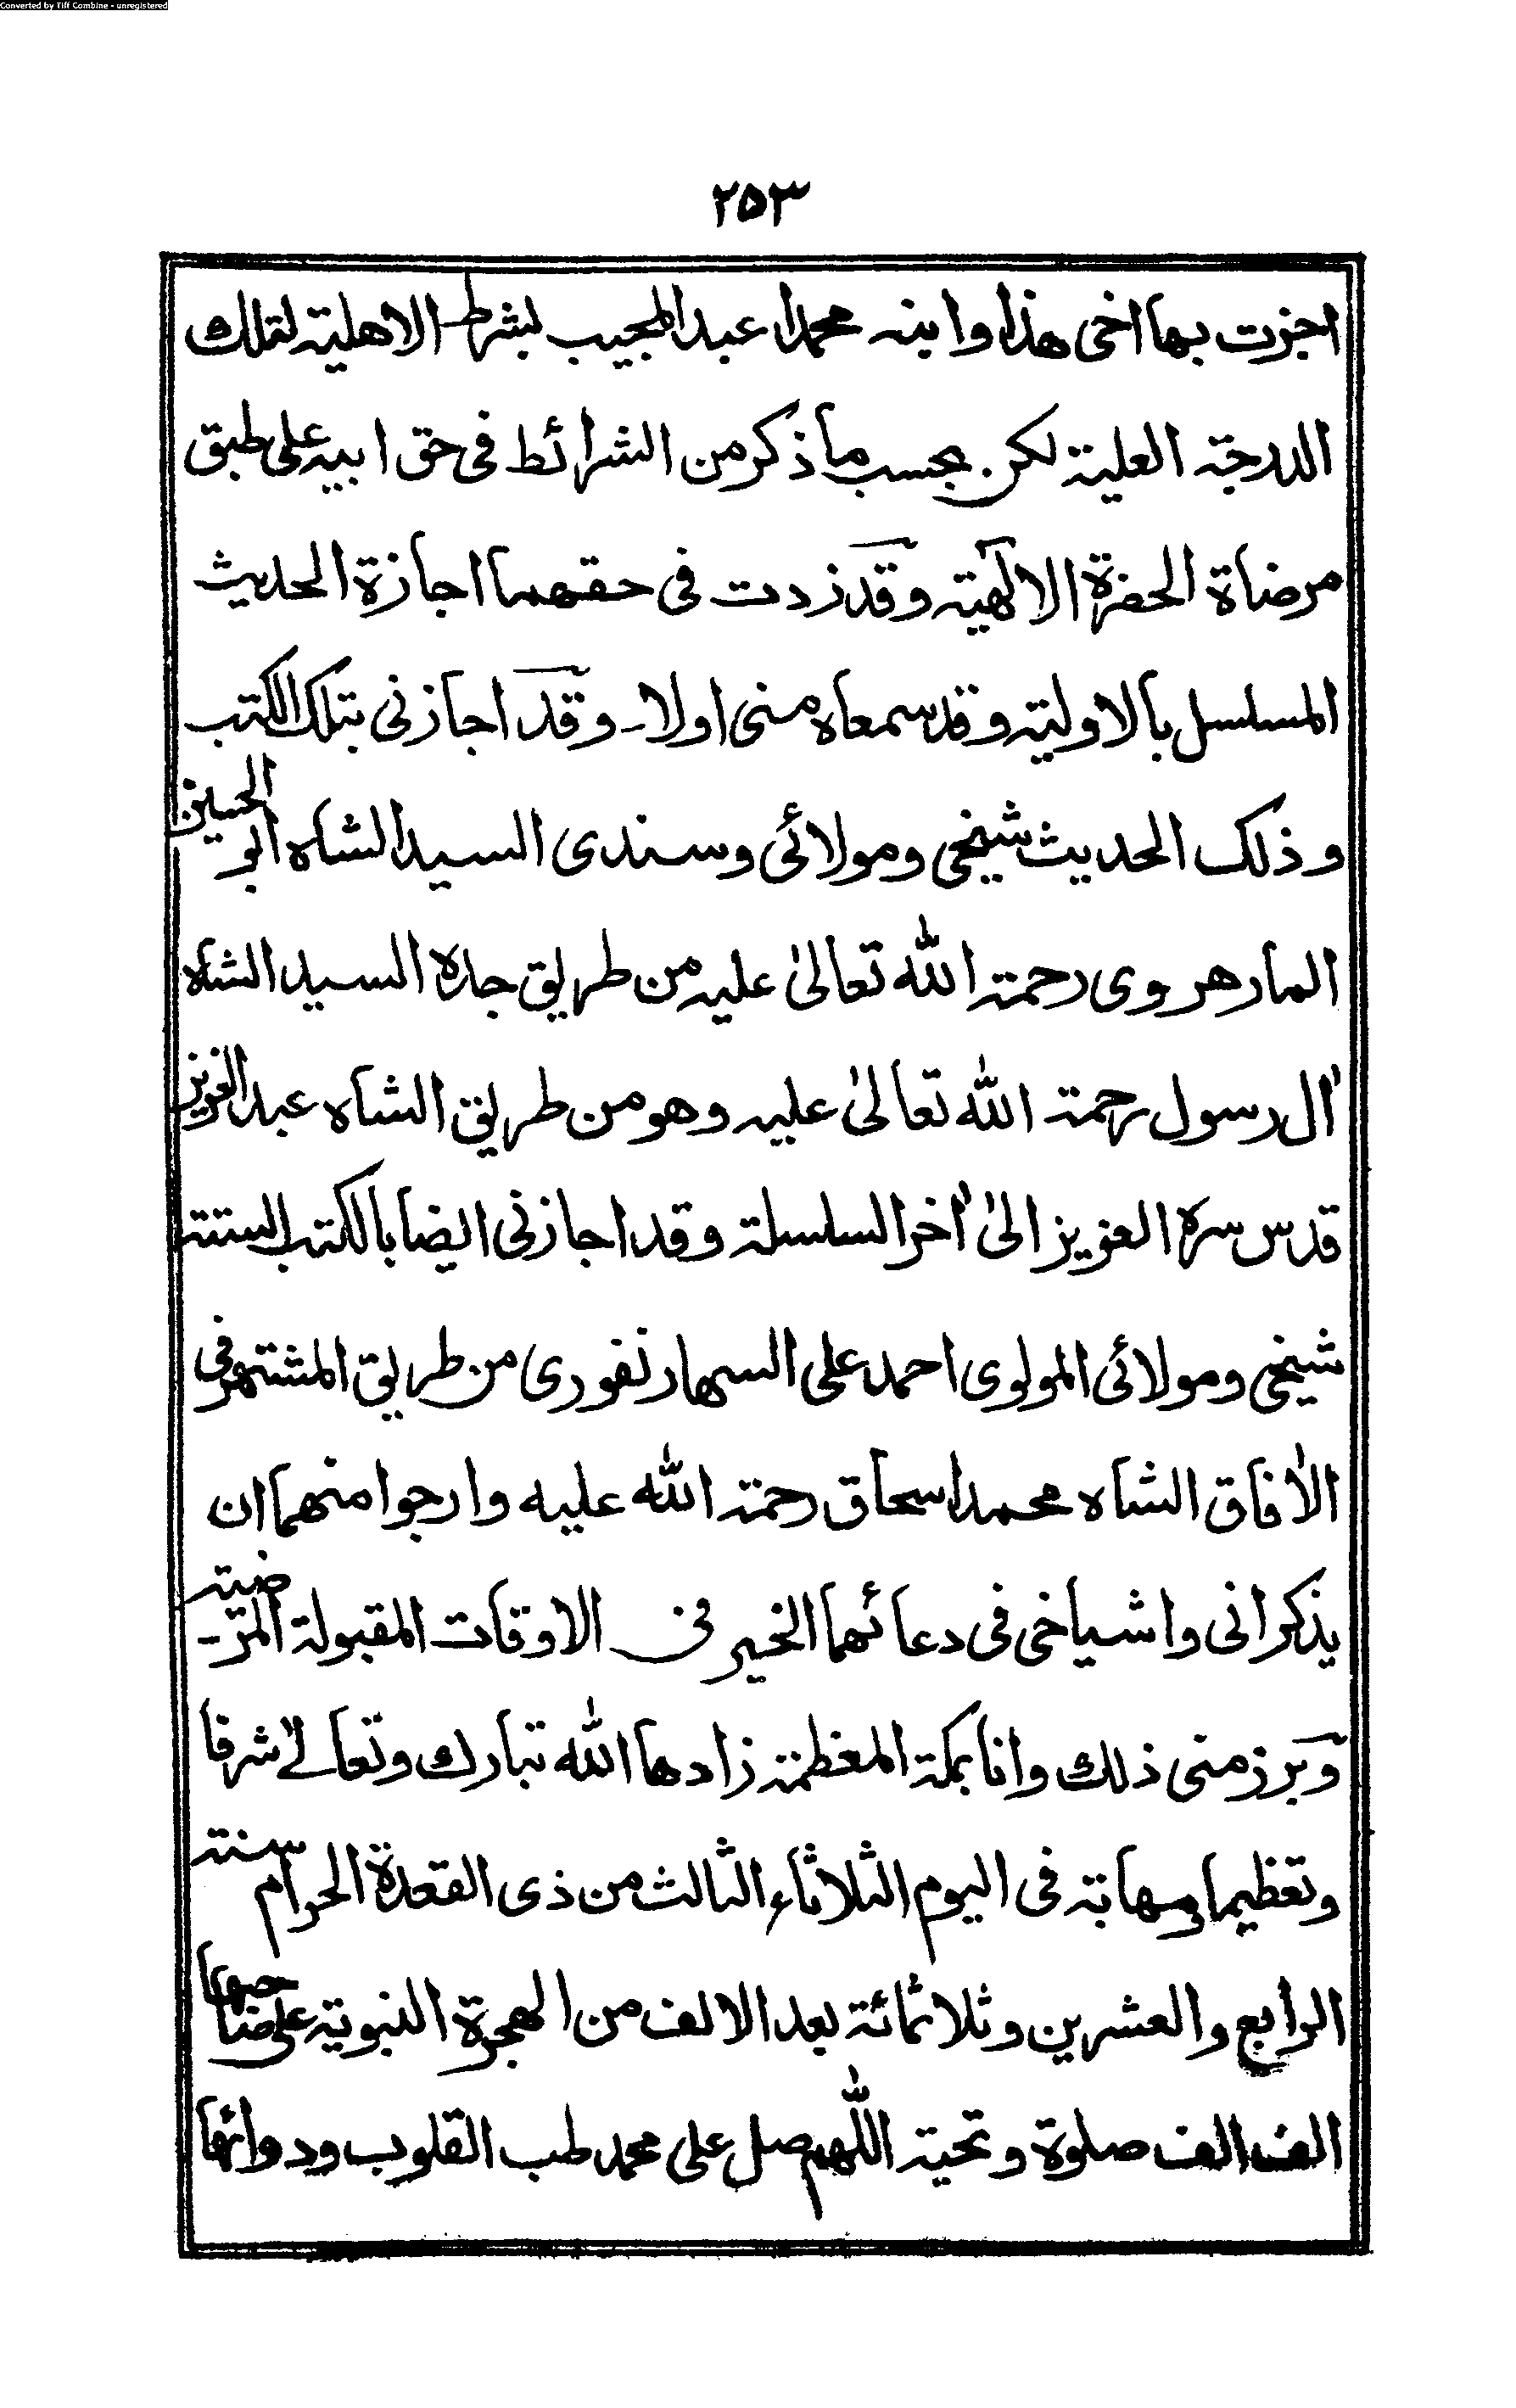 Converted by Tiff Combine - unregistered
۲۵۳
اجزت بها اخی هذا وابنه محمدا عبدالمجيب بشرط الاهلية لتلك
الدرجة العلية لكن بحسب ما ذكر من الشرائط فی حق ابيه علی طبق
مرضاة الحضرة الالٰهية وقد زدت فی حقهما اجازة الحديث
المسلسل بالاولية وقد سمعاه منی اولا۔ وقد اجازنی بتلک الكتب
وذلک الحديث شيخی ومولائی وسندی السيد الشاه ابو الحسين
المارهروی رحمة الله تعالیٰ عليه من طريق جده السيد الشاه
اٰل رسول رحمة الله تعالیٰ عليه وهو من طريق الشاه عبدالعزيز
قدس سره العزيز الیٰ اٰخر السلسلة وقد اجازنی ايضا بالكتب الستة
شيخی ومولائی المولوی احمد علی السهارنفوری من طريق المشتهر فی
الاٰفاق الشاه محمد اسحاق رحمة الله عليه وارجوا منهما ان
يذكرانی واشياخی فی دعائهما الخير فی الاوقات المقبولة المرضية
وبرز منی ذلك وانا بمكة المعظمة زادها الله تبارك وتعالیٰ شرفا
وتعظيما ومهابة فی اليوم الثلاثاء الثالث من ذی القعدة الحرام سنة
الرابع والعشرين وثلاثمائة بعد الالف من الهجرة النبوية علی صاحبها
الف الف صلوة وتحية اللهم صل علی محمد طب القلوب ودوائها